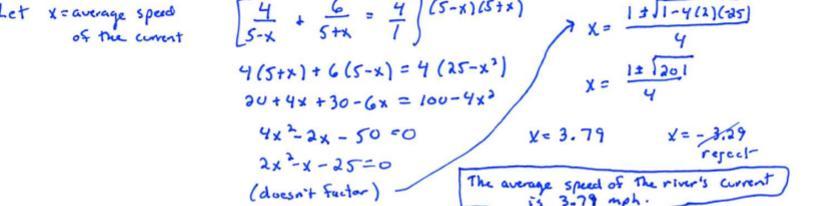 Let x = average speed
of the current
[4/(5-x) + 6/(5+x) = 4/1] (5-x)(5+x)
4(5+x) + 6(5-x) = 4(25-x²)
20 + 4x + 30 - 6x = 100 - 4x²
4x² - 2x - 50 = 0
2x² - x - 25 = 0
(doesn't factor)
x = (1 ± √(1-4(2)(-25)))/4
x = (1 ± √201)/4
x = 3.79 x = -3.29
reject
The average speed of the river's current
is 3.79 mph.